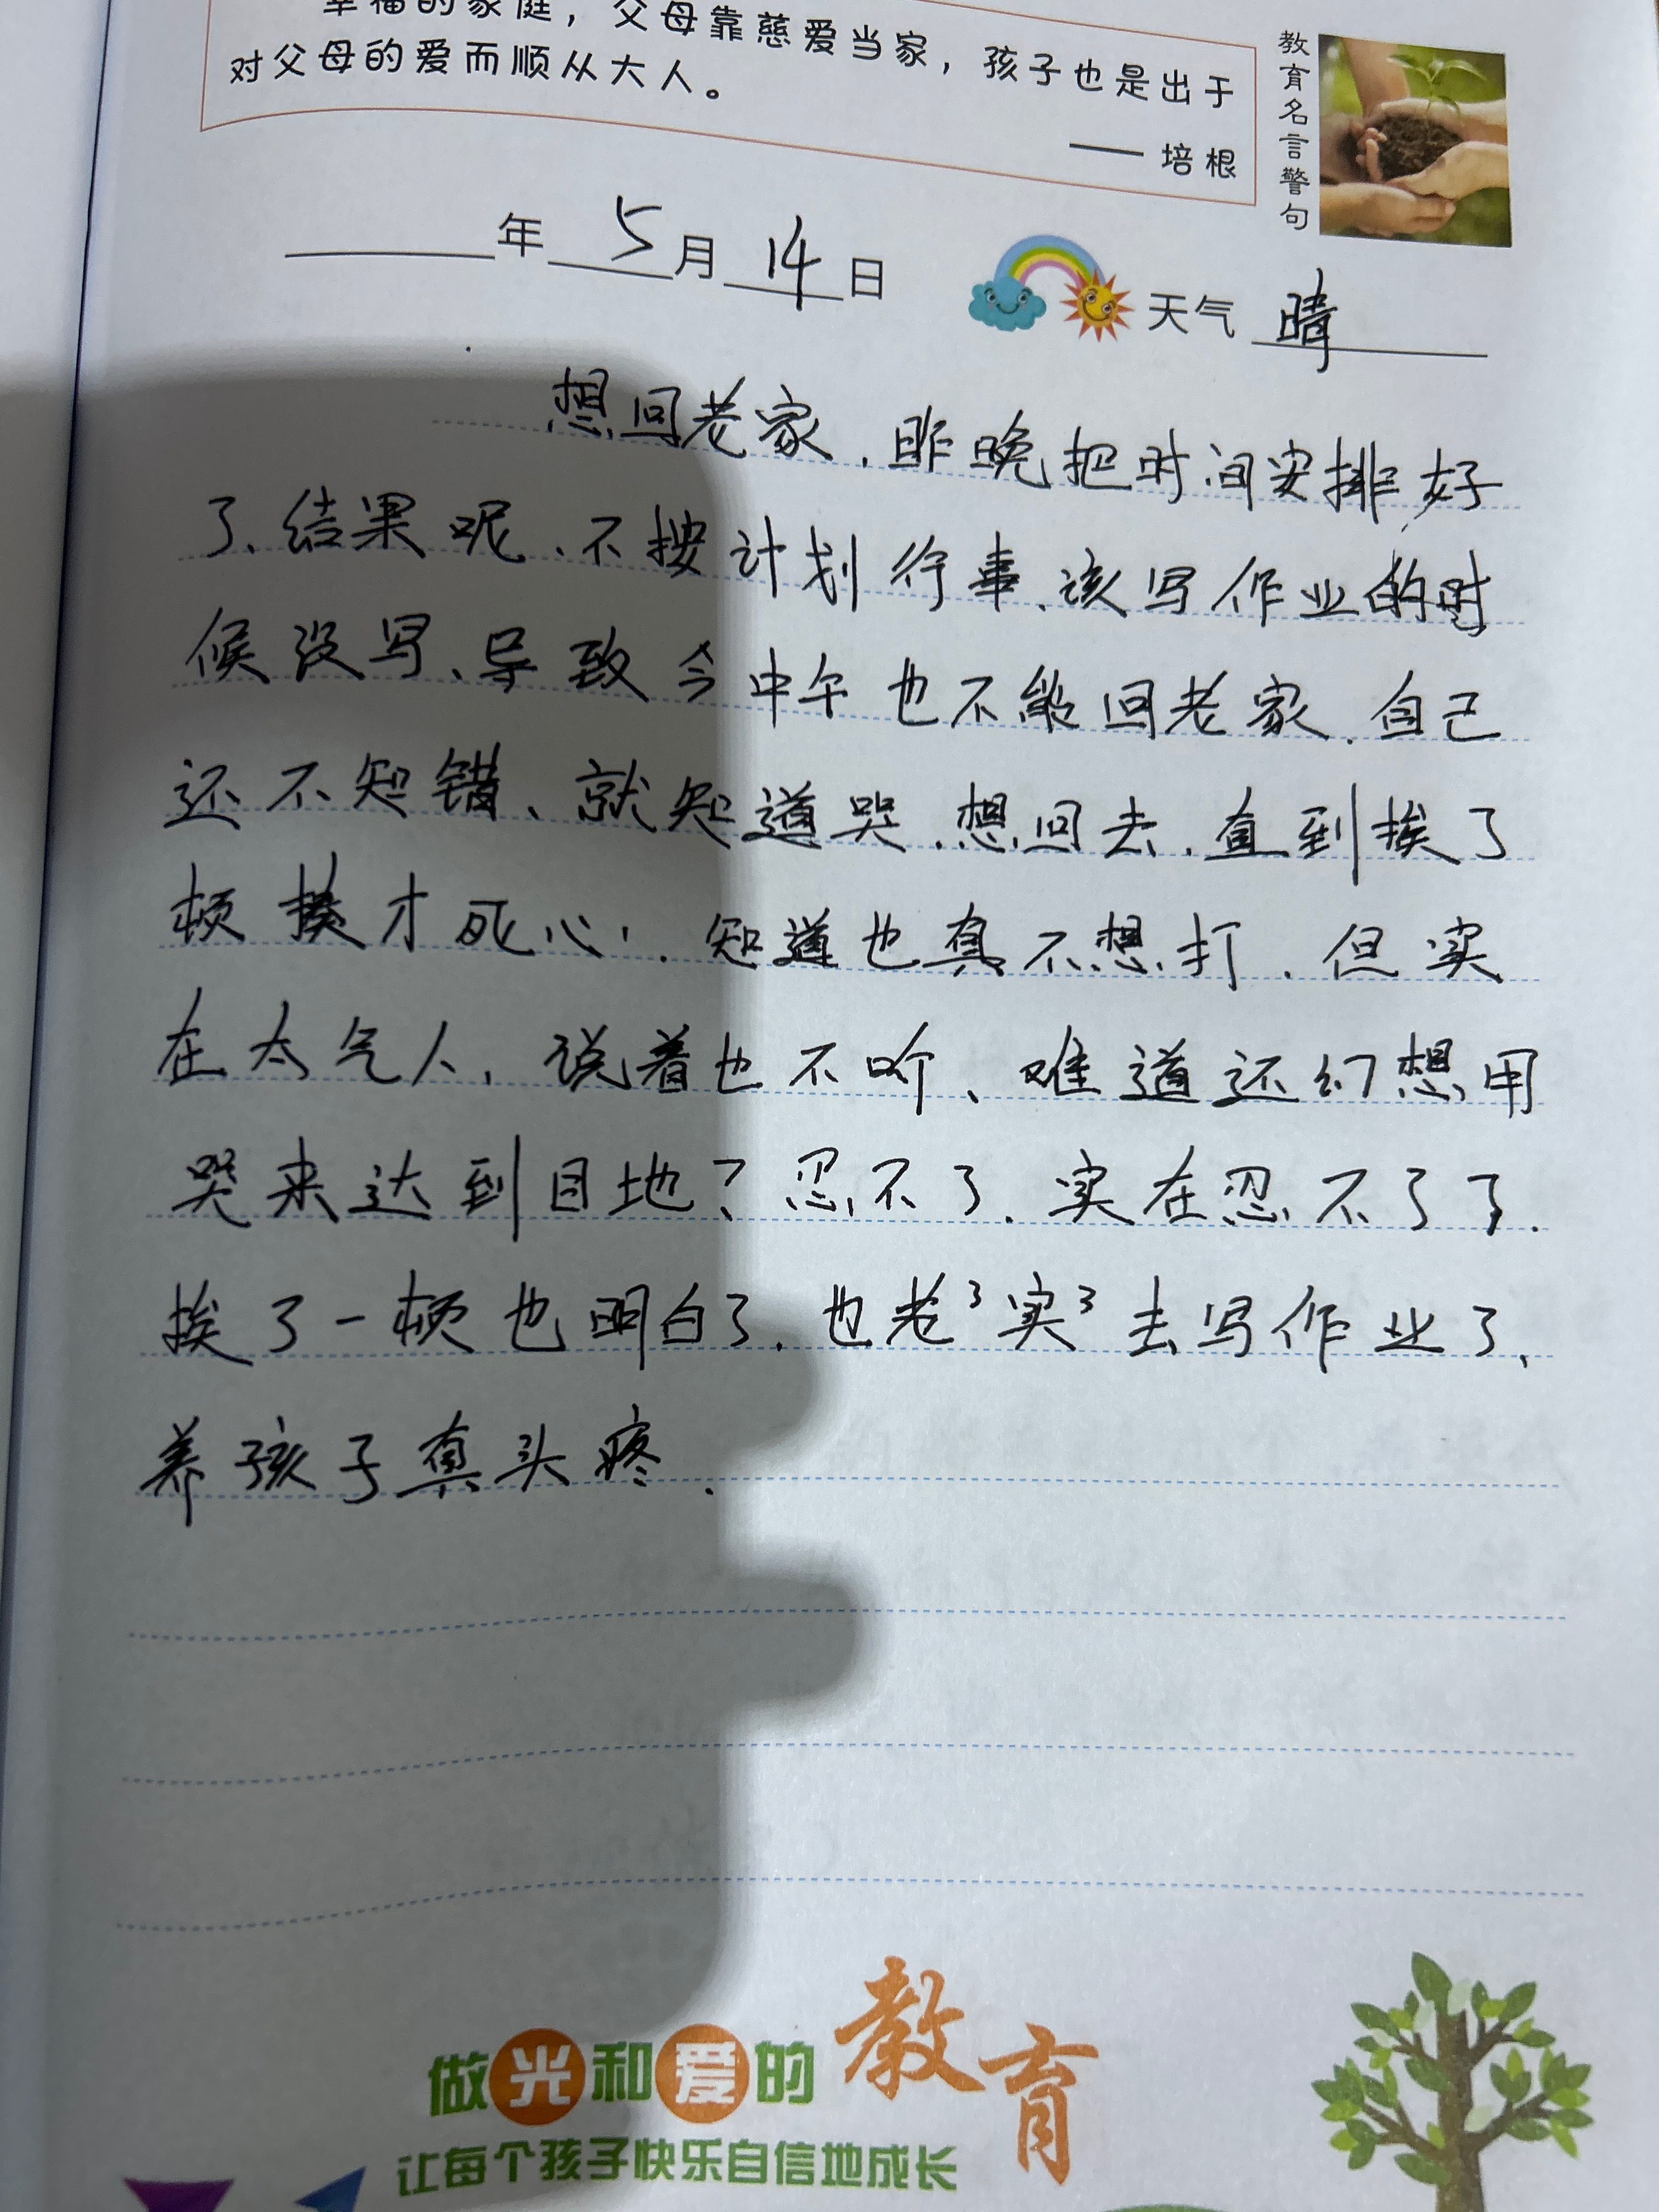 幸福的家庭，父母靠慈爱当家，孩子也是出于
对父母的爱而顺从大人。
—— 培根
教育名言警句
年 5月 14日 天气 晴
想回老家.昨晚把时间安排好
了、结果呢、不按计划行事、该写作业的时
候没写、导致今中午也不能回老家.自己
还不知错、就知道哭.想回去.直到挨了
顿揍才死心.知道也真不想打.但实
在太气人.说着也不听、难道还幻想用
哭来达到目地?忍不了.实在忍不了了.
挨了一顿也明白了.也老ㄋ实ㄋ去写作业了、
养孩子真头疼.
做光和爱的教育
让每个孩子快乐自信地成长